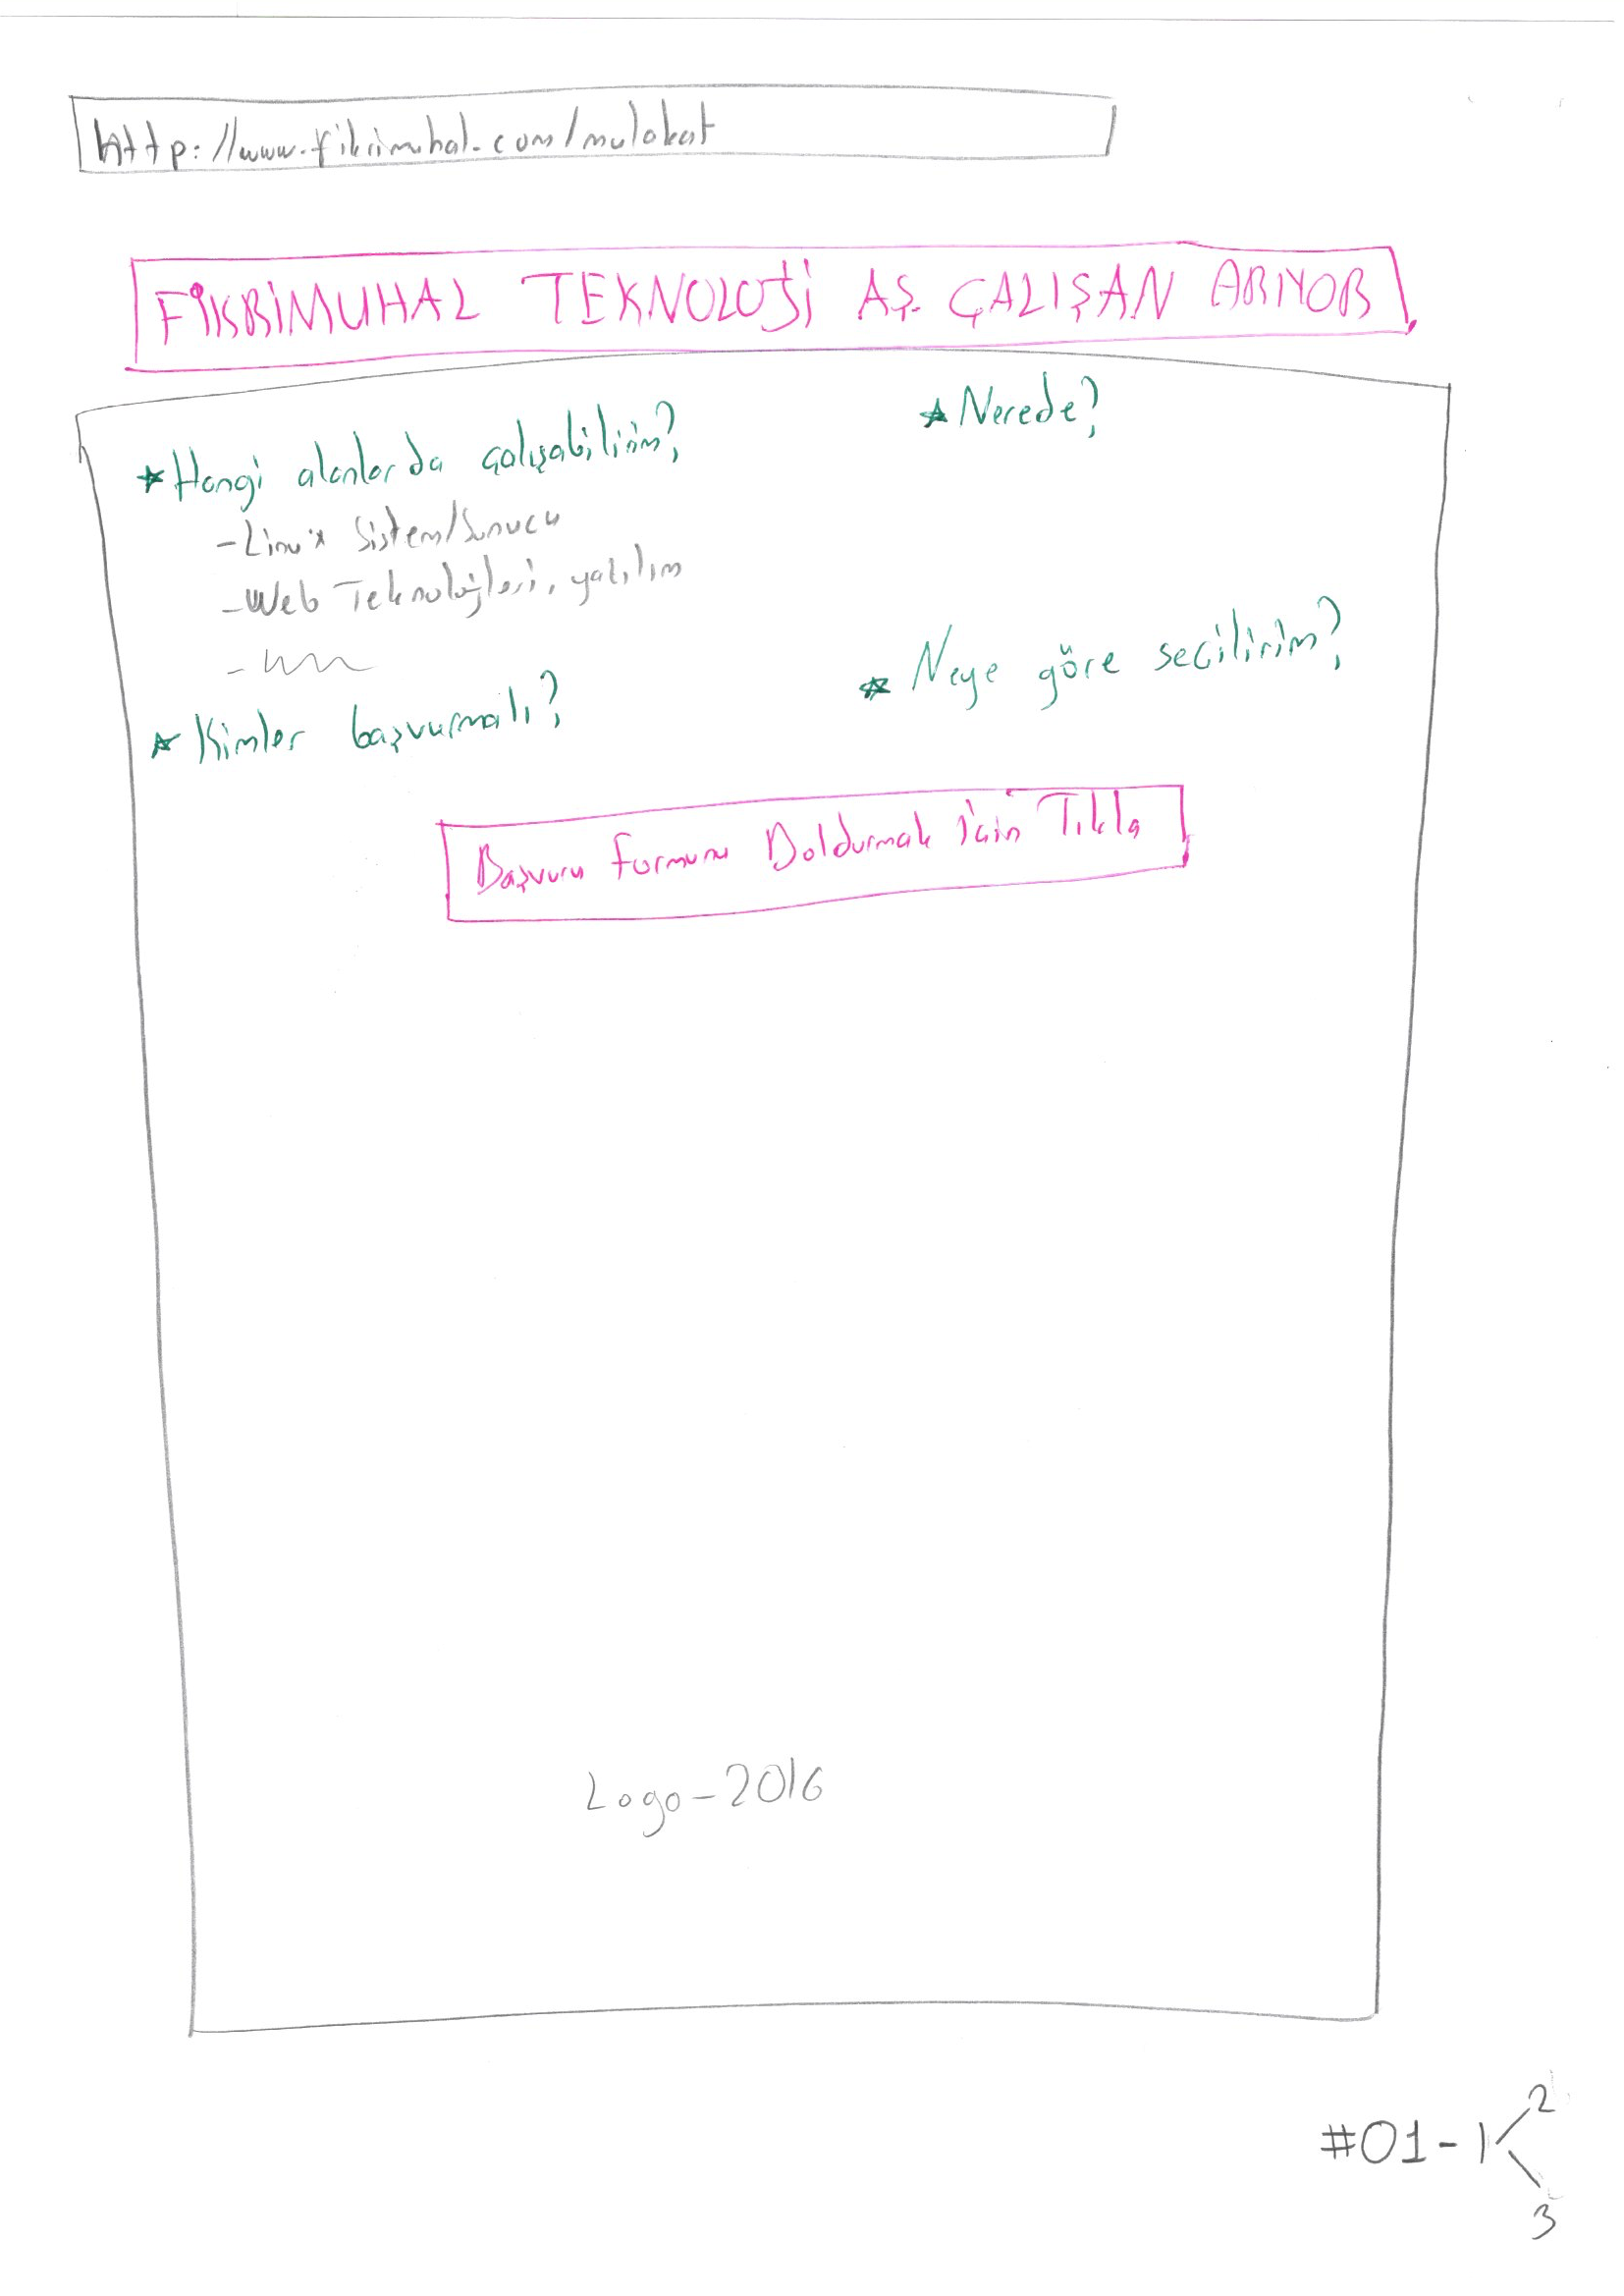 http://www.fikrimuhal.com/mulakat
FİKRİMUHAL TEKNOLOJİ AŞ. ÇALIŞAN ARIYOR
* Hangi alanlarda çalışabilirim?
- Linux Sistem/Sunucu
- Web Teknolojileri, yazılım
* Kimler başvurmalı?
* Nerede?
* Neye göre seçilirim?
Başvuru formunu Doldurmak için Tıkla
Logo-2016
#01-1
2
3